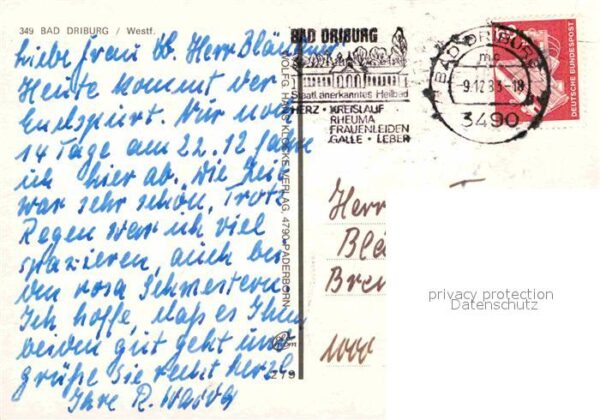 349 BAD DRIBURG / Westf.
Liebe Frau u. Herr Blän
Heute kommt der
Endspurt. Nur noch
14 Tage am 22.12 fahre
ich hier ab. Die Zeit
war sehr schön. Trotz
Regen war ich viel
spazieren, auch bei
den rosa Schwestern.
Ich hoffe, daß es Ihnen
beiden gut geht und
grüße Sie recht herzl.
Ihre R.
WOLFG. HANS KLOCKE VERLAG, 4790 PADERBORN
279
BAD DRIBURG
Staatl. anerkanntes Heilbad
HERZ · KREISLAUF
RHEUMA
FRAUENLEIDEN
GALLE · LEBER
BAD DRIBURG
-9.12.83-18
3490
DEUTSCHE BUNDESPOST
Herr
Blä
Bre
1000
privacy protection
Datenschutz